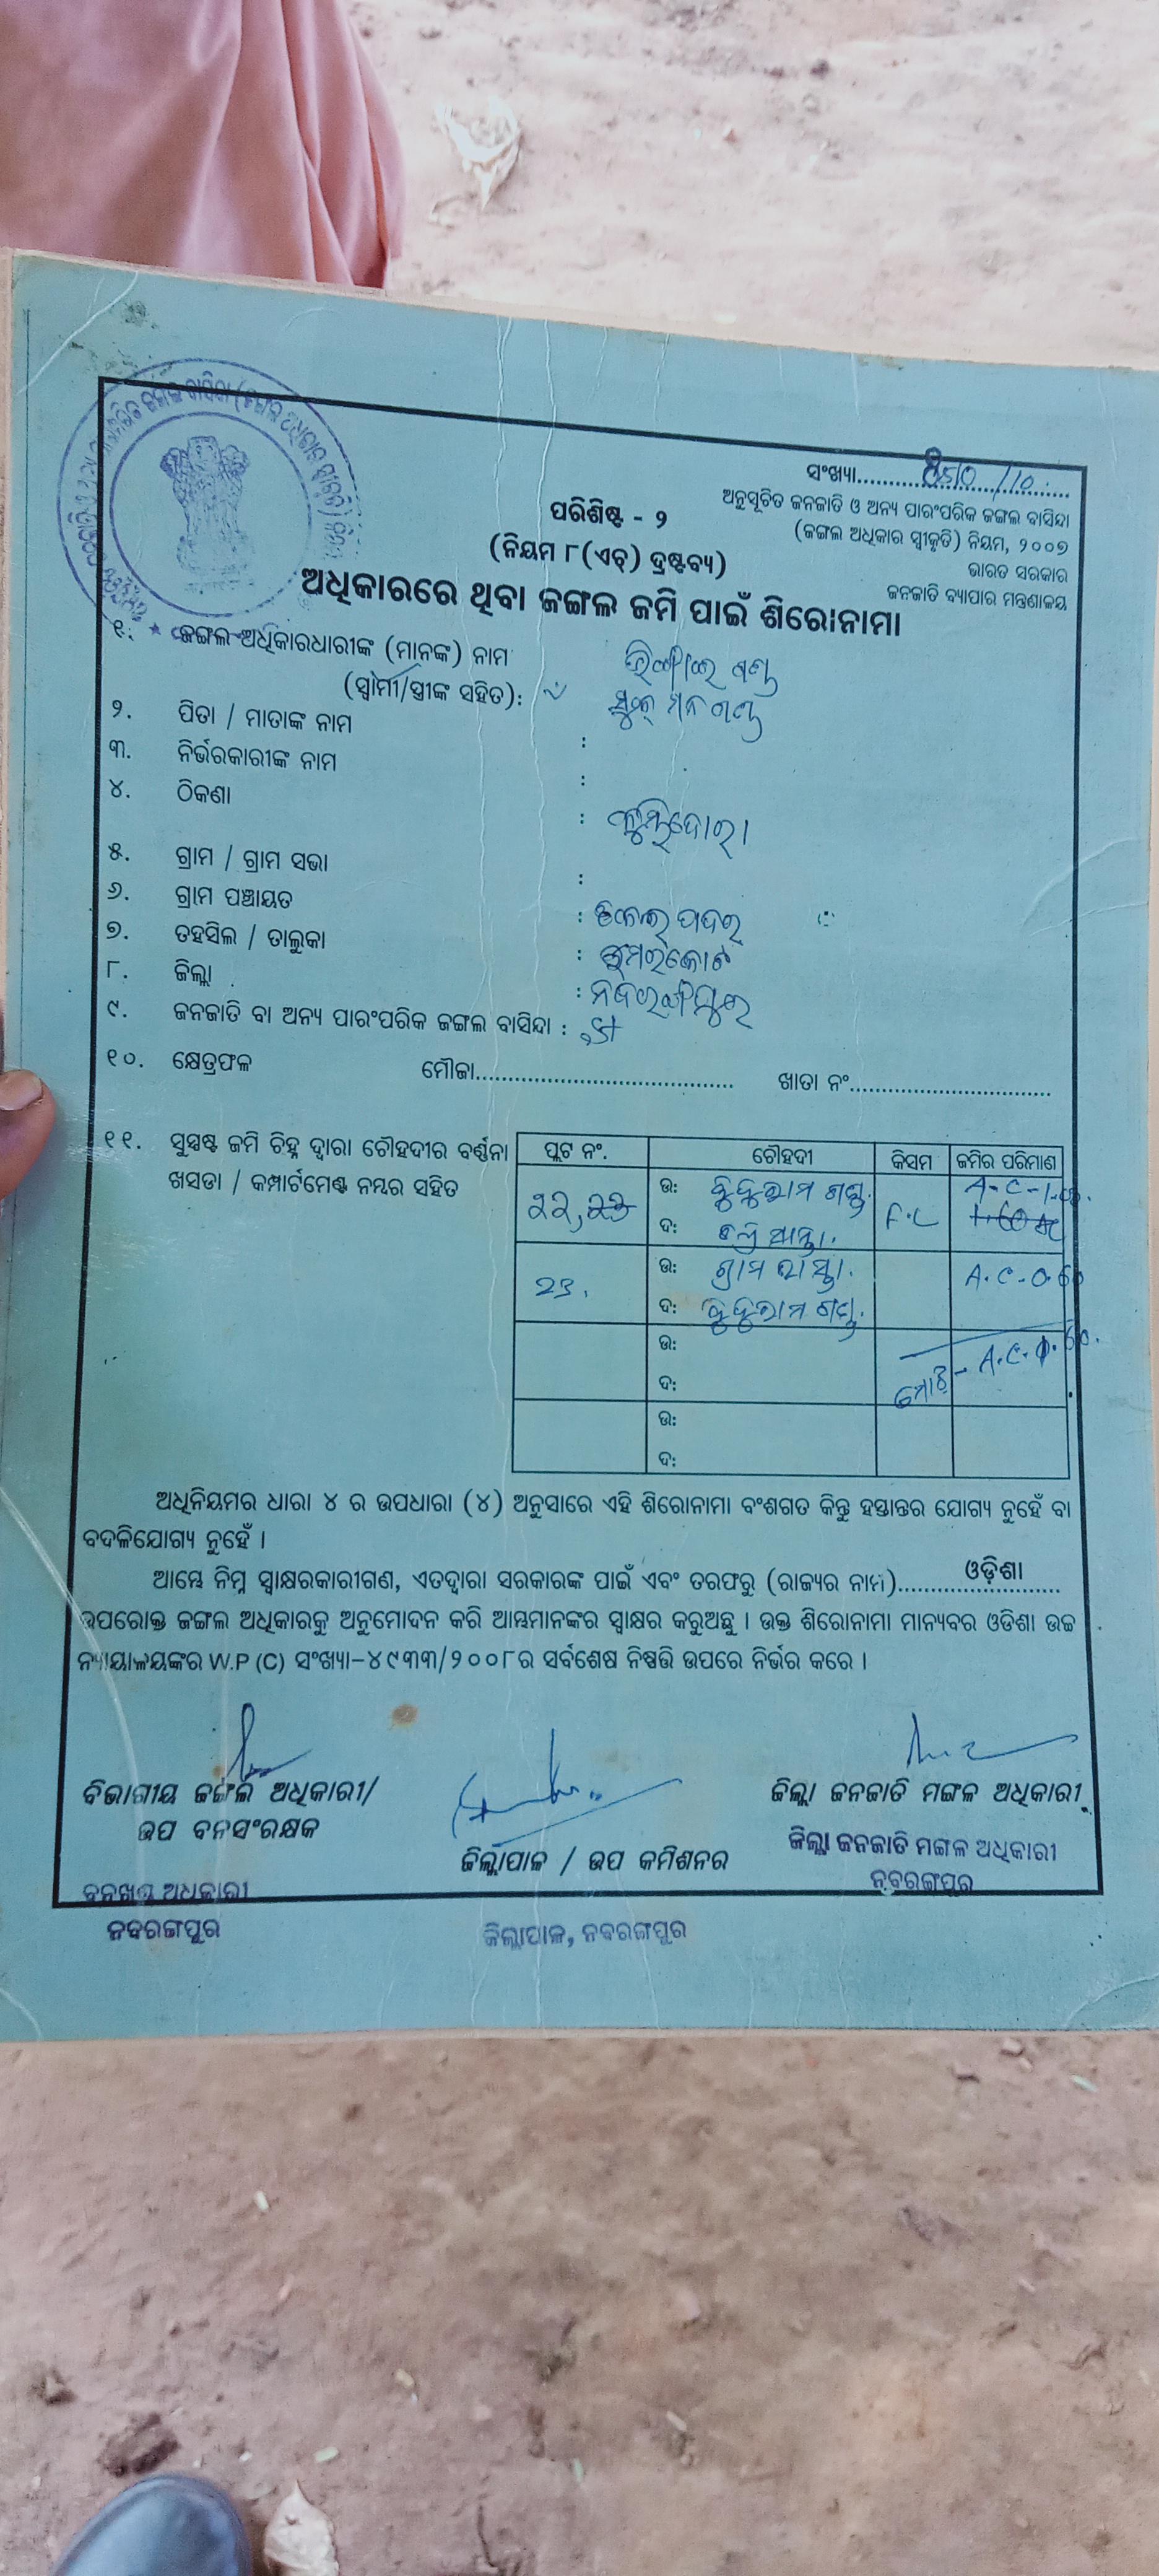 ସଂଖ୍ୟା.................../10
ଅନୁସୂଚିତ ଜନଜାତି ଓ ଅନ୍ୟ ପାରଂପରିକ ଜଙ୍ଗଲ ବାସିନ୍ଦା
(ଜଙ୍ଗଲ ଅଧିକାର ସ୍ୱୀକୃତି) ନିୟମ, ୨୦୦୭
ଭାରତ ସରକାର
ଜନଜାତି ବ୍ୟାପାର ମନ୍ତ୍ରଣାଳୟ
ପରିଶିଷ୍ଟ - ୨
(ନିୟମ ୮(ଏଚ୍) ଦ୍ରଷ୍ଟବ୍ୟ)
ଅଧିକାରରେ ଥିବା ଜଙ୍ଗଲ ଜମି ପାଇଁ ଶିରୋନାମା
୧. ଜଙ୍ଗଲ ଅଧିକାରଧାରୀଙ୍କ (ମାନଙ୍କ) ନାମ
(ସ୍ୱାମୀ/ସ୍ତ୍ରୀଙ୍କ ସହିତ):
୨. ପିତା / ମାତାଙ୍କ ନାମ :
୩. ନିର୍ଭରକାରୀଙ୍କ ନାମ :
୪. ଠିକଣା :
୫. ଗ୍ରାମ / ଗ୍ରାମ ସଭା :
୬. ଗ୍ରାମ ପଞ୍ଚାୟତ :
୭. ତହସିଲ / ତାଲୁକା : ଉମରକୋଟ
୮. ଜିଲ୍ଲା : ନବରଙ୍ଗପୁର
୯. ଜନଜାତି ବା ଅନ୍ୟ ପାରଂପରିକ ଜଙ୍ଗଲ ବାସିନ୍ଦା : ST
୧୦. କ୍ଷେତ୍ରଫଳ ମୌଜା........................................ ଖାତା ନଂ...............................
୧୧. ସୁସ୍ପଷ୍ଟ ଜମି ଚିହ୍ନ ଦ୍ୱାରା ଚୌହଦୀର ବର୍ଣ୍ଣନା
ଖସଡା / କମ୍ପାର୍ଟମେଣ୍ଟ ନମ୍ବର ସହିତ
ପ୍ଲଟ ନଂ. ଚୌହଦୀ କିସମ ଜମିର ପରିମାଣ
22, 23 ଉ: F.C A-C-1.00.
ଦ:
23. ଉ: ଗ୍ରାମ ରାସ୍ତା. A.C-0.60
ଦ:
ଉ: ମୋଟ - A.C.1.60.
ଦ:
ଉ:
ଦ:
ଅଧିନିୟମର ଧାରା ୪ ର ଉପଧାରା (୪) ଅନୁସାରେ ଏହି ଶିରୋନାମା ବଂଶଗତ କିନ୍ତୁ ହସ୍ତାନ୍ତର ଯୋଗ୍ୟ ନୁହେଁ ବା
ବଦଳିଯୋଗ୍ୟ ନୁହେଁ ।
ଆମ୍ଭେ ନିମ୍ନ ସ୍ୱାକ୍ଷରକାରୀଗଣ, ଏତଦ୍ୱାରା ସରକାରଙ୍କ ପାଇଁ ଏବଂ ତରଫରୁ (ରାଜ୍ୟର ନାମ)......ଓଡ଼ିଶା......
ଉପରୋକ୍ତ ଜଙ୍ଗଲ ଅଧିକାରକୁ ଅନୁମୋଦନ କରି ଆମ୍ଭମାନଙ୍କର ସ୍ୱାକ୍ଷର କରୁଅଛୁ । ଉକ୍ତ ଶିରୋନାମା ମାନ୍ୟବର ଓଡିଶା ଉଚ୍ଚ
ନ୍ୟାୟାଳୟଙ୍କର W.P (C) ସଂଖ୍ୟା-୪୯୩୩/୨୦୦୮ର ସର୍ବଶେଷ ନିଷ୍ପତ୍ତି ଉପରେ ନିର୍ଭର କରେ ।
ବିଭାଗୀୟ ଜଙ୍ଗଲ ଅଧିକାରୀ/
ଉପ ବନସଂରକ୍ଷକ
ବନଖଣ୍ଡ ଅଧିକାରୀ
ନବରଙ୍ଗପୁର
ଜିଲ୍ଲାପାଳ / ଉପ କମିଶନର
ଜିଲ୍ଲାପାଳ, ନବରଙ୍ଗପୁର
ଜିଲ୍ଲା ଜନଜାତି ମଙ୍ଗଳ ଅଧିକାରୀ
ଜିଲ୍ଲା ଜନଜାତି ମଙ୍ଗଳ ଅଧିକାରୀ
ନବରଙ୍ଗପୁର